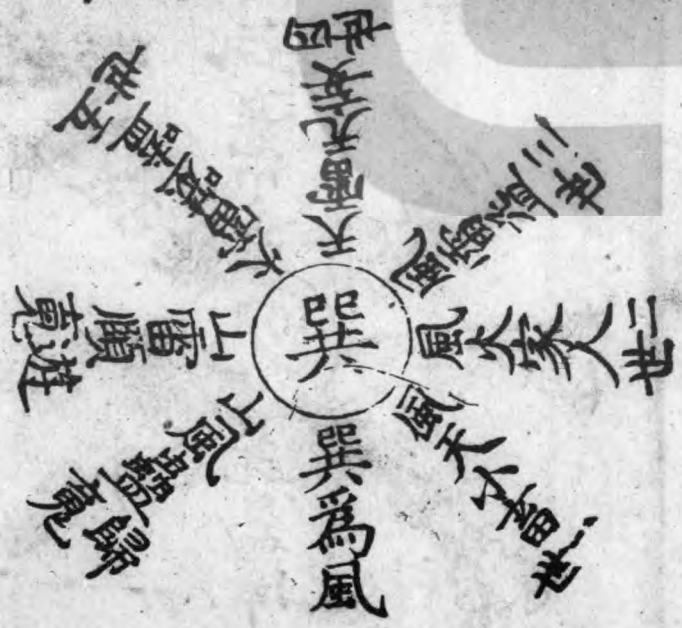 巽
巽為風
風天小畜 一世
風火家人 二世
風雷益 三世
天雷无妄 四世
火雷噬嗑 五世
山雷頤 遊魂
山風蠱 歸魂